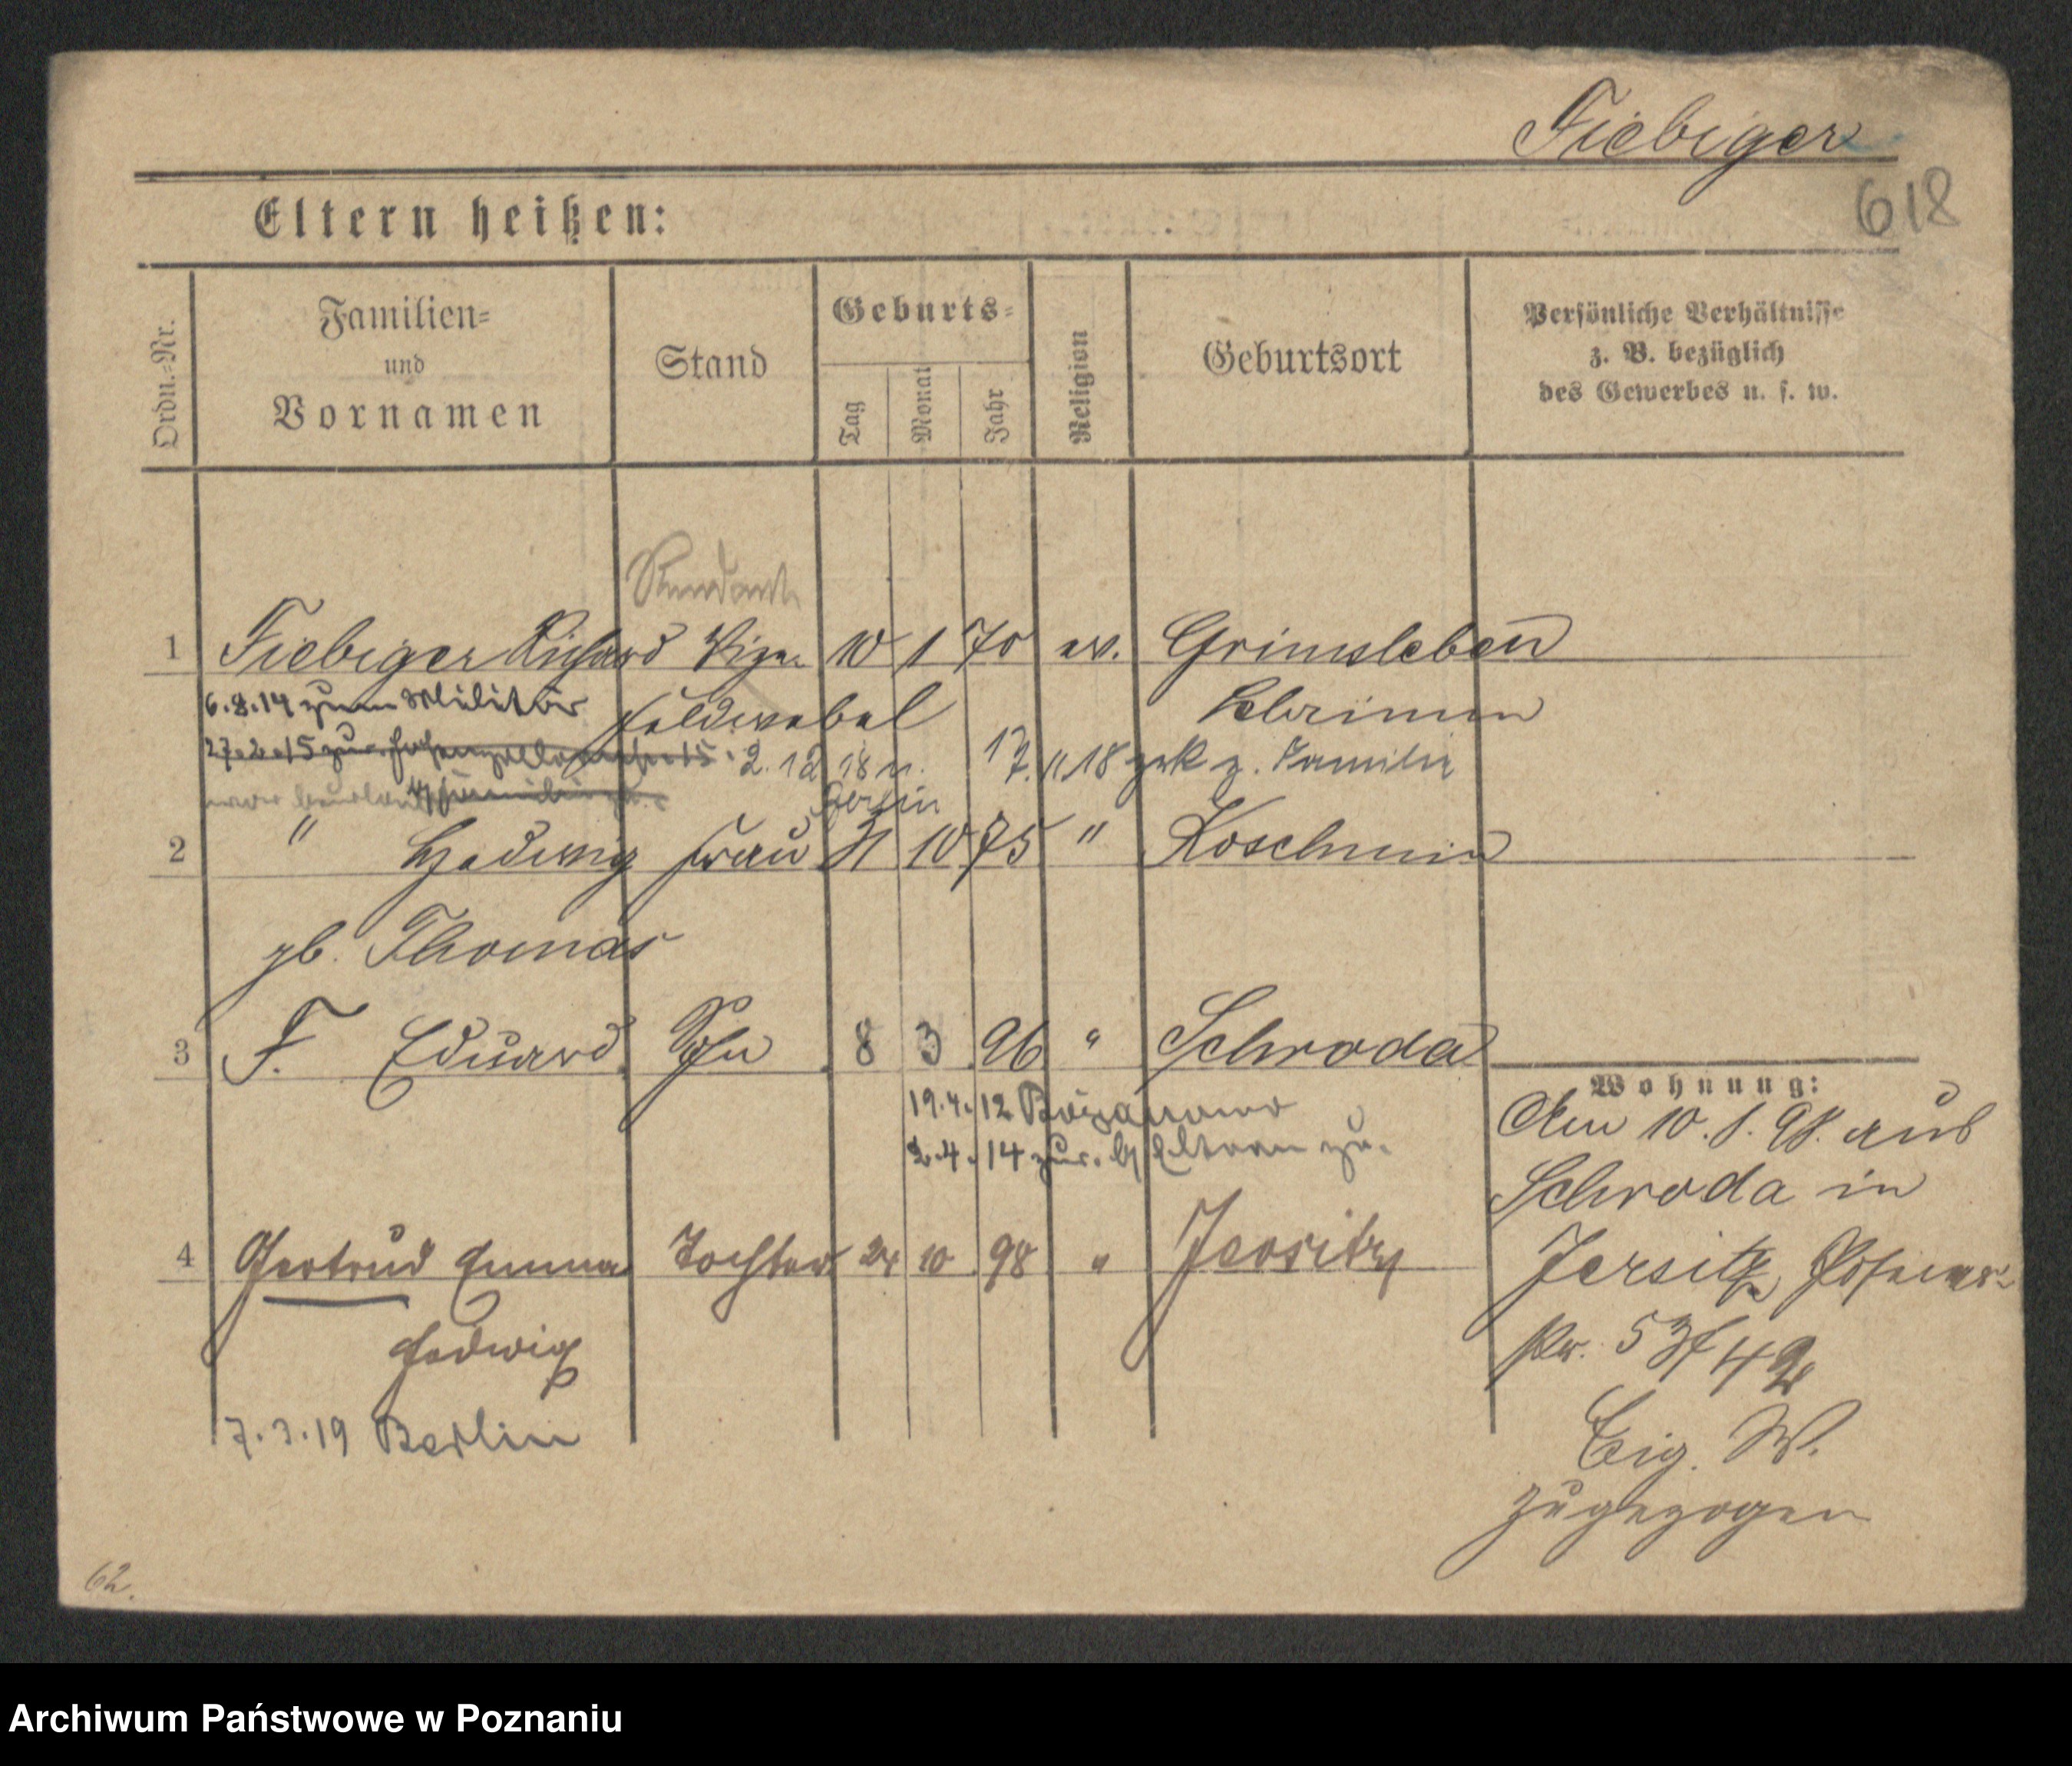 Fiebiger
618
Eltern heißen:
Ordn.-Nr.
Familien-
und
Vornamen
Stand
Geburts-
Tag
Monat
Jahr
Religion
Geburtsort
Persönliche Verhältnisse
z. B. bezüglich
des Gewerbes u. s. w.
1 Fiebiger Richard Vize- 10 1 70 ev. Grimsleben
6.8.14 zum Militär Feldwebel Schrimm
27.2.15 zur. 2.12 18 n. 17.11.18 zrk z. Familie
Berlin
2 " Hedwig Frau 31 10 75 " Koschmin
gb. Thomas
3 F. Eduard Sohn 8 3 96 " Schroda
19.4.12
2.4.14 zur. Eltern zu.
4 Gertrud Emma Tochter 24 10 98 " Jersitz
Hedwig
7.3.19 Berlin
Wohnung:
Am 10.1.98. aus
Schroda in
Jersitz,
Eig. W.
zugezogen
62.
Archiwum Państwowe w Poznaniu